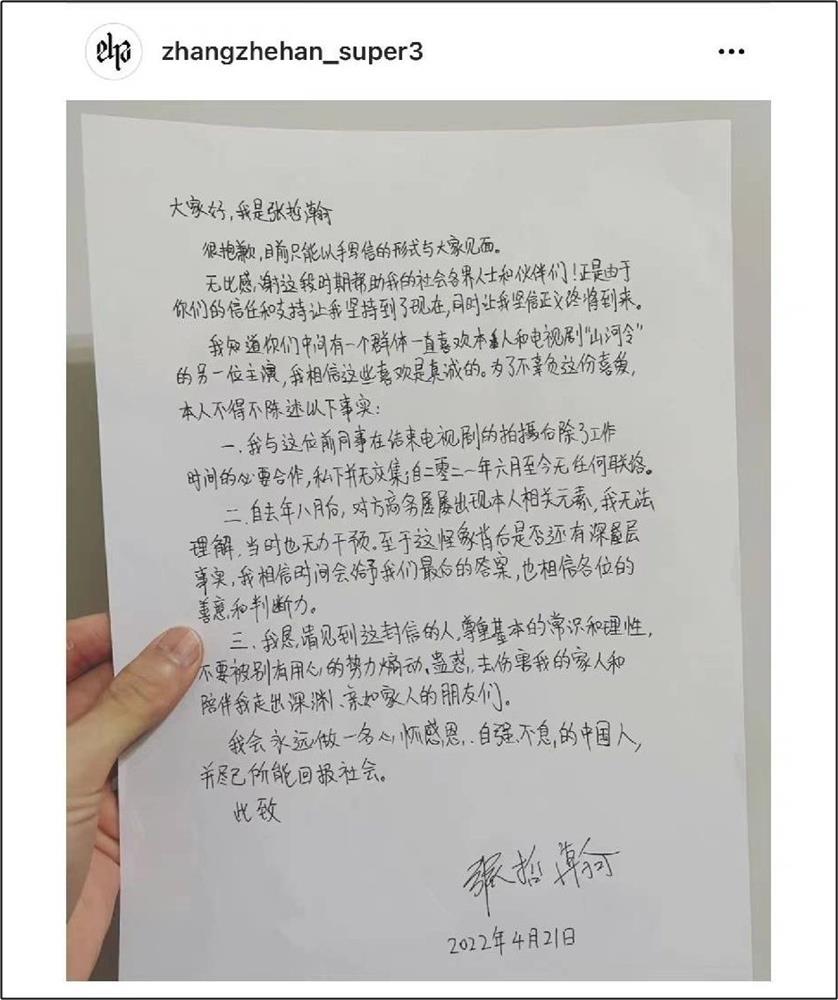 zhangzhehan_super3
大家好，我是张哲瀚
很抱歉，目前只能以手写信的形式与大家见面。
无比感谢这段时期帮助我的社会各界人士和伙伴们！正是由于
你们的信任和支持让我坚持到了现在，同时让我坚信正义终将到来。
我知道你们中间有一个群体一直喜欢本人和电视剧“山河令”
的另一位主演，我相信这些喜欢是真诚的。为了不辜负这份喜爱，
本人不得不陈述以下事实：
一、我与这位前同事在结束电视剧的拍摄后除了工作
时间的必要合作，私下并无交集；自二零二一年六月至今无任何联络。
二、自去年八月后，对方商务屡屡出现本人相关元素，我无法
理解，当时也无力干预。至于这怪象背后是否还有深层
事实，我相信时间会给予我们最后的答案，也相信各位的
善意和判断力。
三、我恳请见到这封信的人，尊重基本的常识和理性，
不要被别有用心的势力煽动、蛊惑，去伤害我的家人和
陪伴我走出深渊、亲如家人的朋友们。
我会永远做一名心怀感恩、自强不息的中国人，
并尽己所能回报社会。
此致
张哲瀚
2022年4月21日